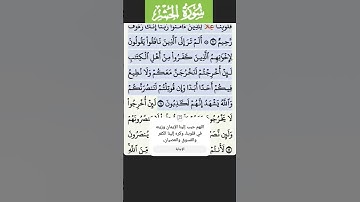 سُورَةُ الْحَشْرِ
قُلُوبِنَا غِلًّا لِّلَّذِينَ ءَامَنُوا۟ رَبَّنَآ إِنَّكَ رَءُوفٌ
رَّحِيمٌ ١٠ ۞ أَلَمْ تَرَ إِلَى ٱلَّذِينَ نَافَقُوا۟ يَقُولُونَ
لِإِخْوَٰنِهِمُ ٱلَّذِينَ كَفَرُوا۟ مِنْ أَهْلِ ٱلْكِتَٰبِ
لَئِنْ أُخْرِجْتُمْ لَنَخْرُجَنَّ مَعَكُمْ وَلَا نُطِيعُ
فِيكُمْ أَحَدًا أَبَدًا وَإِن قُوتِلْتُمْ لَنَنصُرَنَّكُمْ
وَٱللَّهُ يَشْهَدُ إِنَّهُمْ لَكَٰذِبُونَ ١١ لَئِنْ أُخْرِجُوا۟
لَا
وَلَئِن يُنصَرُونَ
لَأَنتُمْ مِّنَ ٱللَّهِ
اللهم حبب إلينا الإيمان وزينه
في قلوبنا، وكره إلينا الكفر
والفسوق والعصيان.